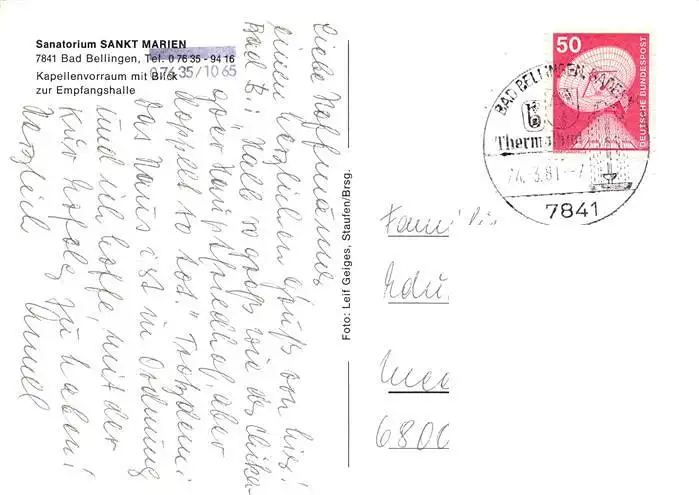 Sanatorium SANKT MARIEN
7841 Bad Bellingen, Tel. 0 76 35 - 94 16
07635/1065
Kapellenvorraum mit Blick
zur Empfangshalle
Liebe Hoffmanns
einen herzlichen Gruß von hier!
Bad B.: "Halb so groß wie der
oder Hauptfriedhof, aber
doppelt so tot." Trotzdem:
das Haus ist in Ordnung
und ich hoffe, mit der
Kur Erfolg zu haben!
Herzlich
Foto: Leif Geiges, Staufen/Brsg.
50
DEUTSCHE BUNDESPOST
BAD BELLINGEN, BADEN
7841
Fami
Edu
6800